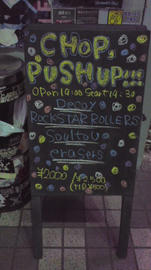 CHOP,
PUSHUP!!!
OPEN 19:00 START 19:30
Decoy
ROCKSTAR ROLLERS
Soultou
erasers
¥2000